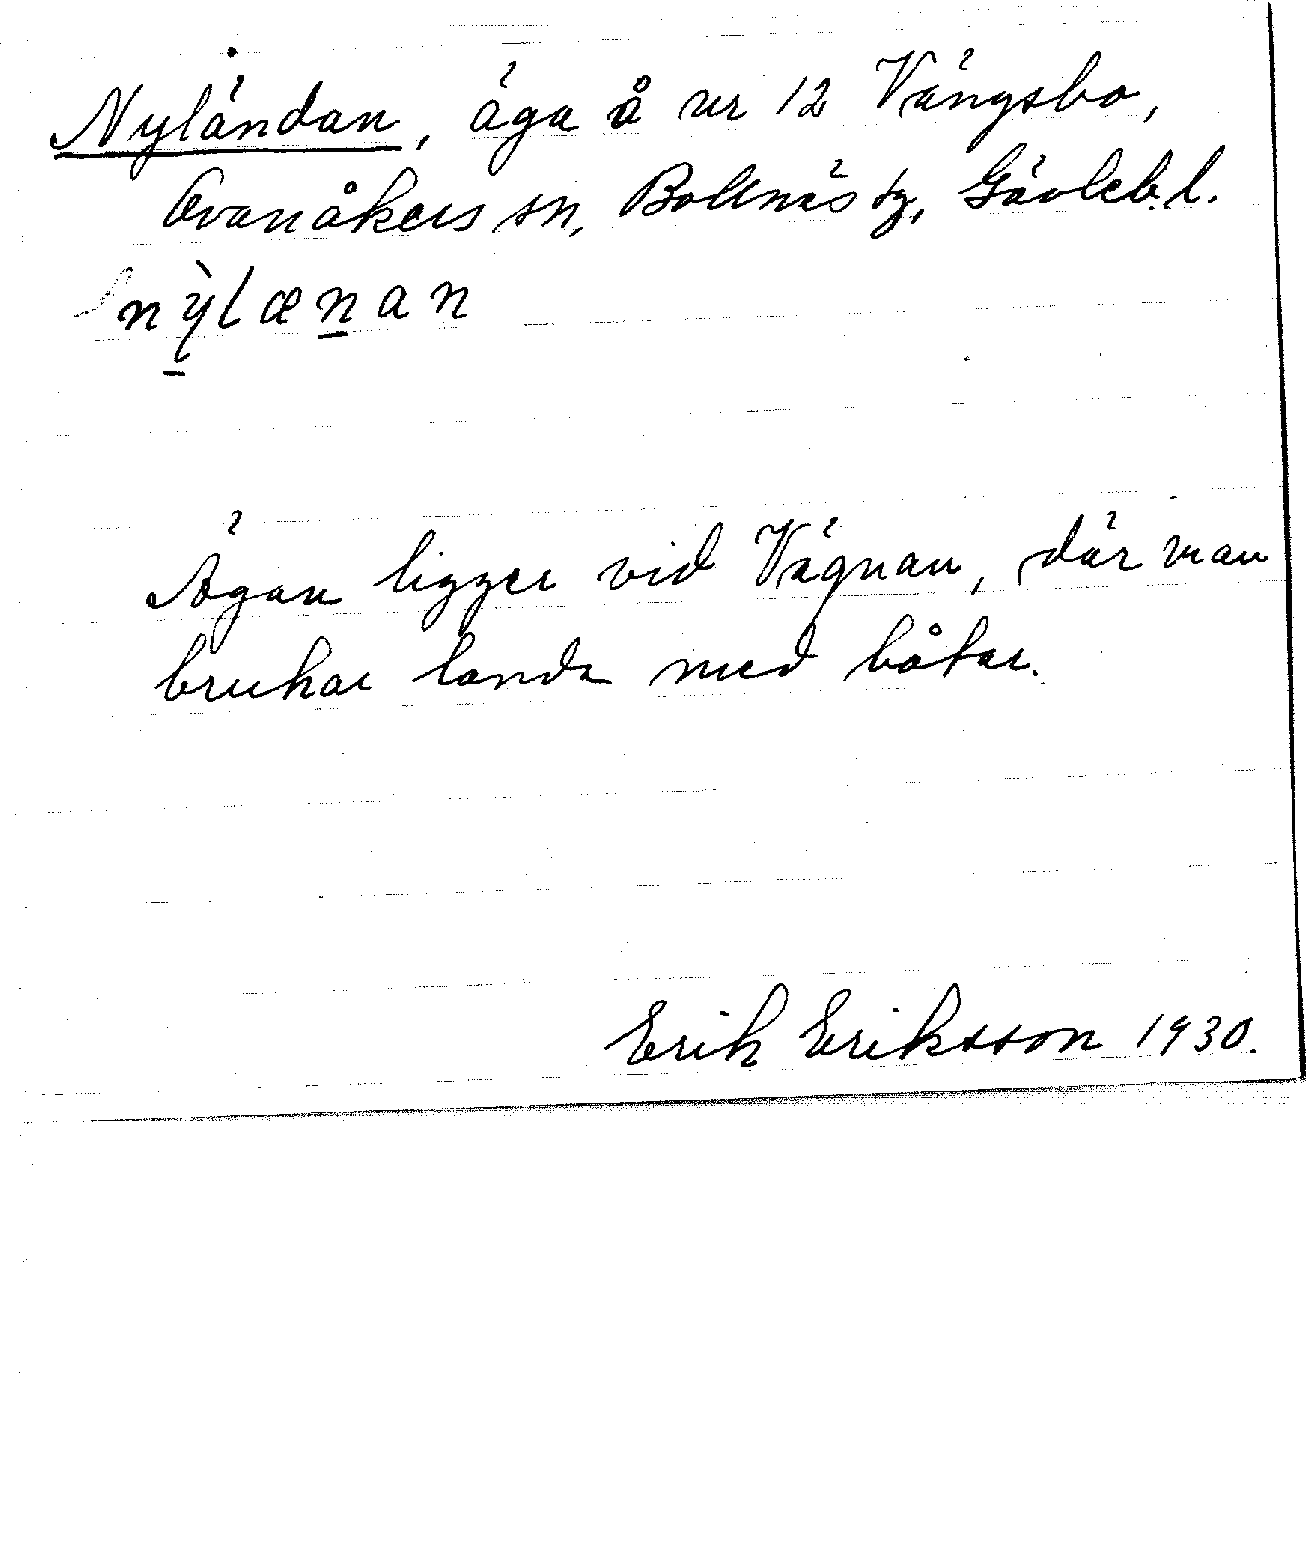 Nyländan, äga å nr 12 Vängsbo,
Ovanåkers sn, Bollnäs tg, Gävleb.l.
nỳlænan
Ägan ligger vid Vägnan, där man
brukar landa med båtar.
Erik Eriksson 1930.